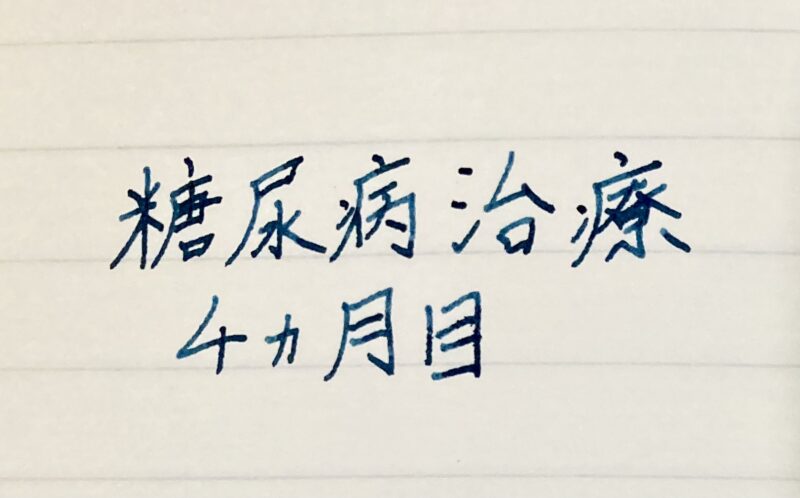 糖尿病治療
4ヵ月目